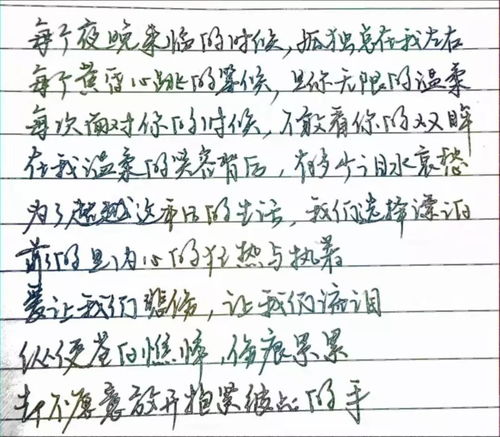 每个夜晚来临的时候，孤独总在我左右
每个黄昏心跳的等候，是你无限的温柔
每次面对你的时候，不敢看你的双眸
在我温柔的笑容背后，有多少泪水哀愁
为了超越这平凡的生活，我们选择漂泊
前的是内心的狂热与执着
爱让我们悲伤，让我们流泪
纵使苍白憔悴，伤痕累累
却不愿意放开抱紧彼此的手